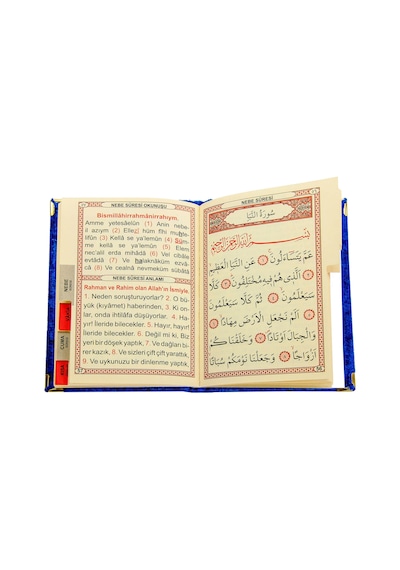 NEBE SÛRESİ OKUNUŞU
Bismillâhirrahmânirrahıym.
Amme yetesâelûn (1) Anin nebe-
il azıym (2) Ellezî hüm fîhi muhte-
lifûn (3) Kellâ se ya'lemûn (4) Süm-
me kellâ se ya'lemûn (5) Elem
nec'alil erda mihâdâ (6) Vel cibâle
evtâdâ (7) Ve halaknâküm ezvâ-
câ (8) Ve cealnâ nevmeküm sübâtâ
NEBE SÛRESİ ANLAMI
Rahman ve Rahim olan Allah'ın İsmiyle
1. Neden soruşturuyorlar? 2. O bü-
yük (kıyâmet) haberinden. 3. Ki
onlar, onda ihtilâfa düşüyorlar. 4. Ha-
yır! İleride bilecekler. 5. Hayır, hayır!
İleride bilecekler. 6. Değil mi ki, Biz
yeri bir döşek yaptık, 7. Ve dağları bi-
rer kazık, 8. Ve sizleri çift çift yarattık,
9. Ve uykunuzu bir dinlenme yaptık,
NEBE
CUMA
NEBE SÛRESİ
سُورَةُ النَّبَأِ
بِسْمِ اللهِ الرَّحْمٰنِ الرَّحِيمِ
عَمَّ يَتَسَاءَلُونَ ۝ عَنِ النَّبَأِ الْعَظِيمِ
۝ اَلَّذِى هُمْ فِيهِ مُخْتَلِفُونَ ۝ كَلَّا
سَيَعْلَمُونَ ۝ ثُمَّ كَلَّا سَيَعْلَمُونَ
۝ اَلَمْ نَجْعَلِ الْاَرْضَ مِهَادًا ۝
وَالْجِبَالَ اَوْتَادًا ۝ وَخَلَقْنَاكُمْ
اَزْوَاجًا ۝ وَجَعَلْنَا نَوْمَكُمْ سُبَاتًا